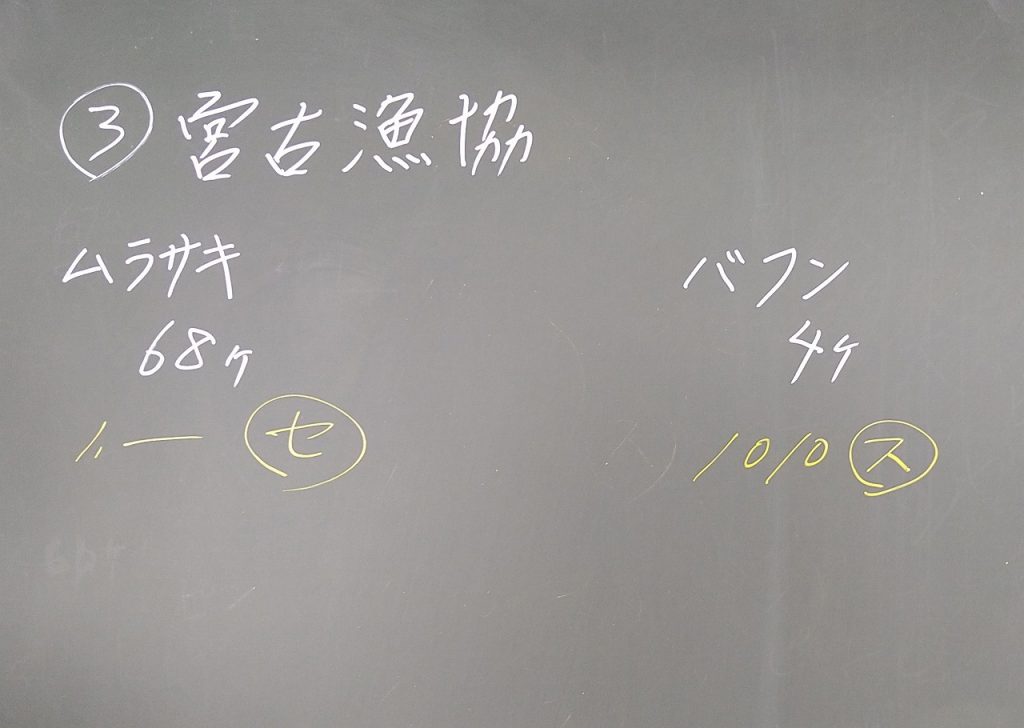 ③宮古漁協
ムラサキ
68ヶ
㋝
バフン
4ヶ
1010㋜